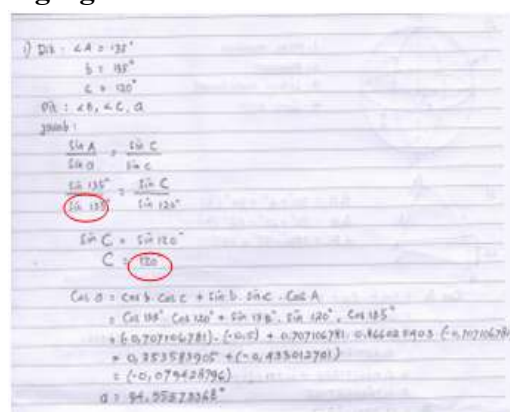 1) Dik : ∠A = 135°
b = 135°
c = 120°
Dit : ∠B, ∠C, a
Jawab :
Sin A / Sin a = Sin C / Sin c
Sin 135° / Sin 135° = Sin C / Sin 120°
Sin C = Sin 120°
C = 120
Cos a = Cos b. Cos c + Sin b. Sin c . Cos A
= Cos 135°. Cos 120° + Sin 135°. Sin 120°. Cos 135°
= (-0,707106781). (-0,5) + 0,707106781. 0,866025403 (-0,707106781
= 0,353553905 + (-0,433012701)
= (-0,079428796)
a = 94,55573368°